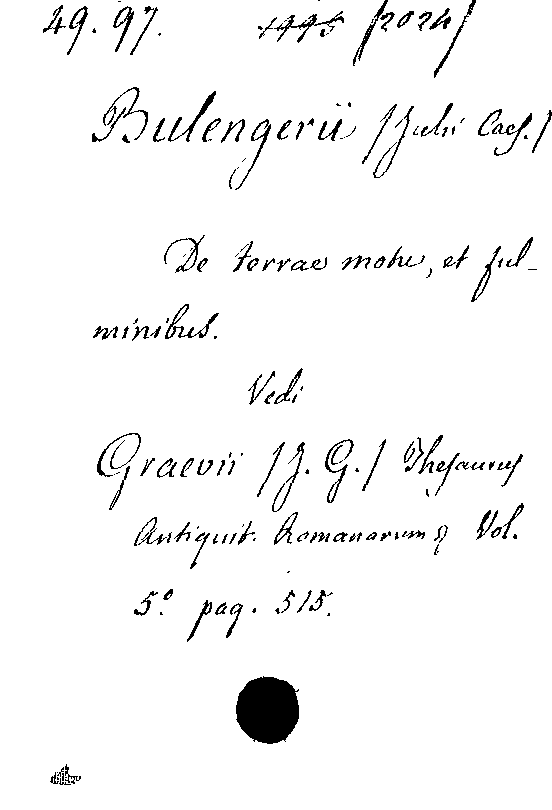 49. 97. 1995 /2024/
Bulengerii /Julii Caes./
De terrae motu, et ful-
minibus.
Vedi
Graevii /J. G./ Thesaurus
Antiquit. Romanarum & Vol.
5º pag. 515.